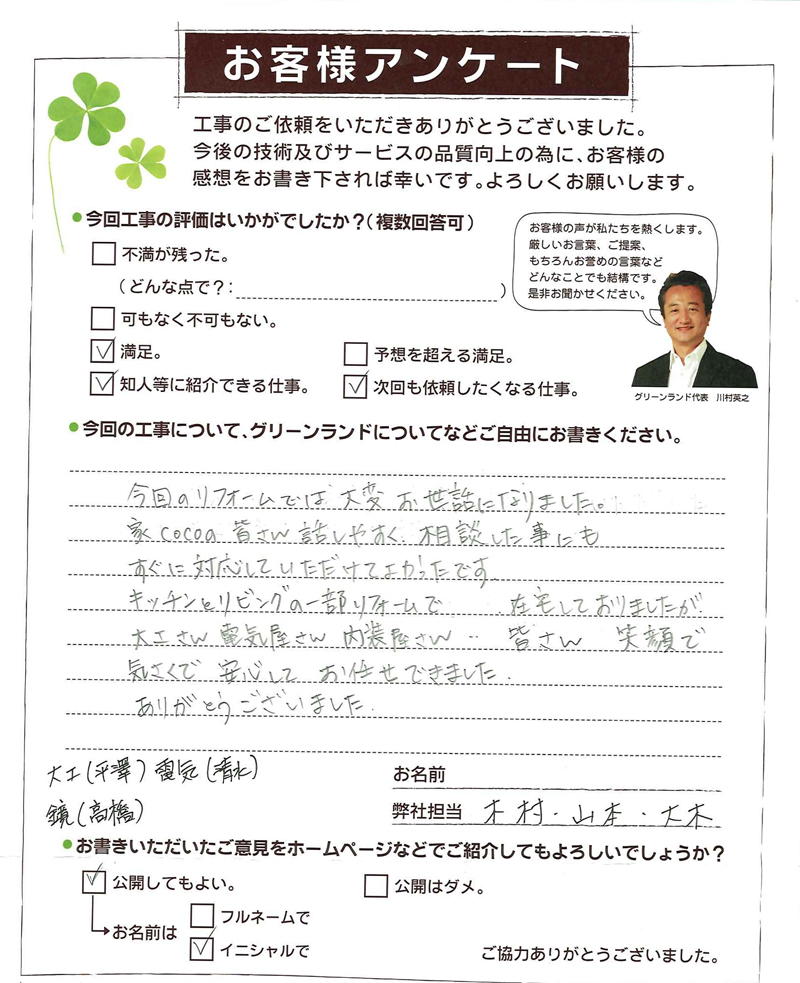 お客様アンケート
工事のご依頼をいただきありがとうございました。
今後の技術及びサービスの品質向上の為に、お客様の
感想をお書き下されば幸いです。よろしくお願いします。
今回工事の評価はいかがでしたか？（複数回答可）
不満が残った。
（どんな点で？： ）
可もなく不可もない。
満足。
予想を超える満足。
知人等に紹介できる仕事。
次回も依頼したくなる仕事。
お客様の声が私たちを熱くします。
厳しいお言葉、ご提案、
もちろんお誉めの言葉など
どんなことでも結構です。
是非お聞かせください。
グリーンランド代表 川村英之
今回の工事について、グリーンランドについてなどご自由にお書きください。
今回のリフォームでは 大変 お世話になりました。
家cocoの 皆さん 話しやすく、相談した事にも
すぐに対応していただけてよかったです
キッチンとリビングの一部リフォームで 在宅しておりましたが
大工さん 電気屋さん 内装屋さん ‥ 皆さん 笑顔で
気さくで 安心して お任せできました.
ありがとうございました.
大工（平澤）電気（清水）
鏡（高橋）
お名前
弊社担当 木村・山本・大木
お書きいただいたご意見をホームページなどでご紹介してもよろしいでしょうか？
公開してもよい。
公開はダメ。
お名前は
フルネームで
イニシャルで
ご協力ありがとうございました。